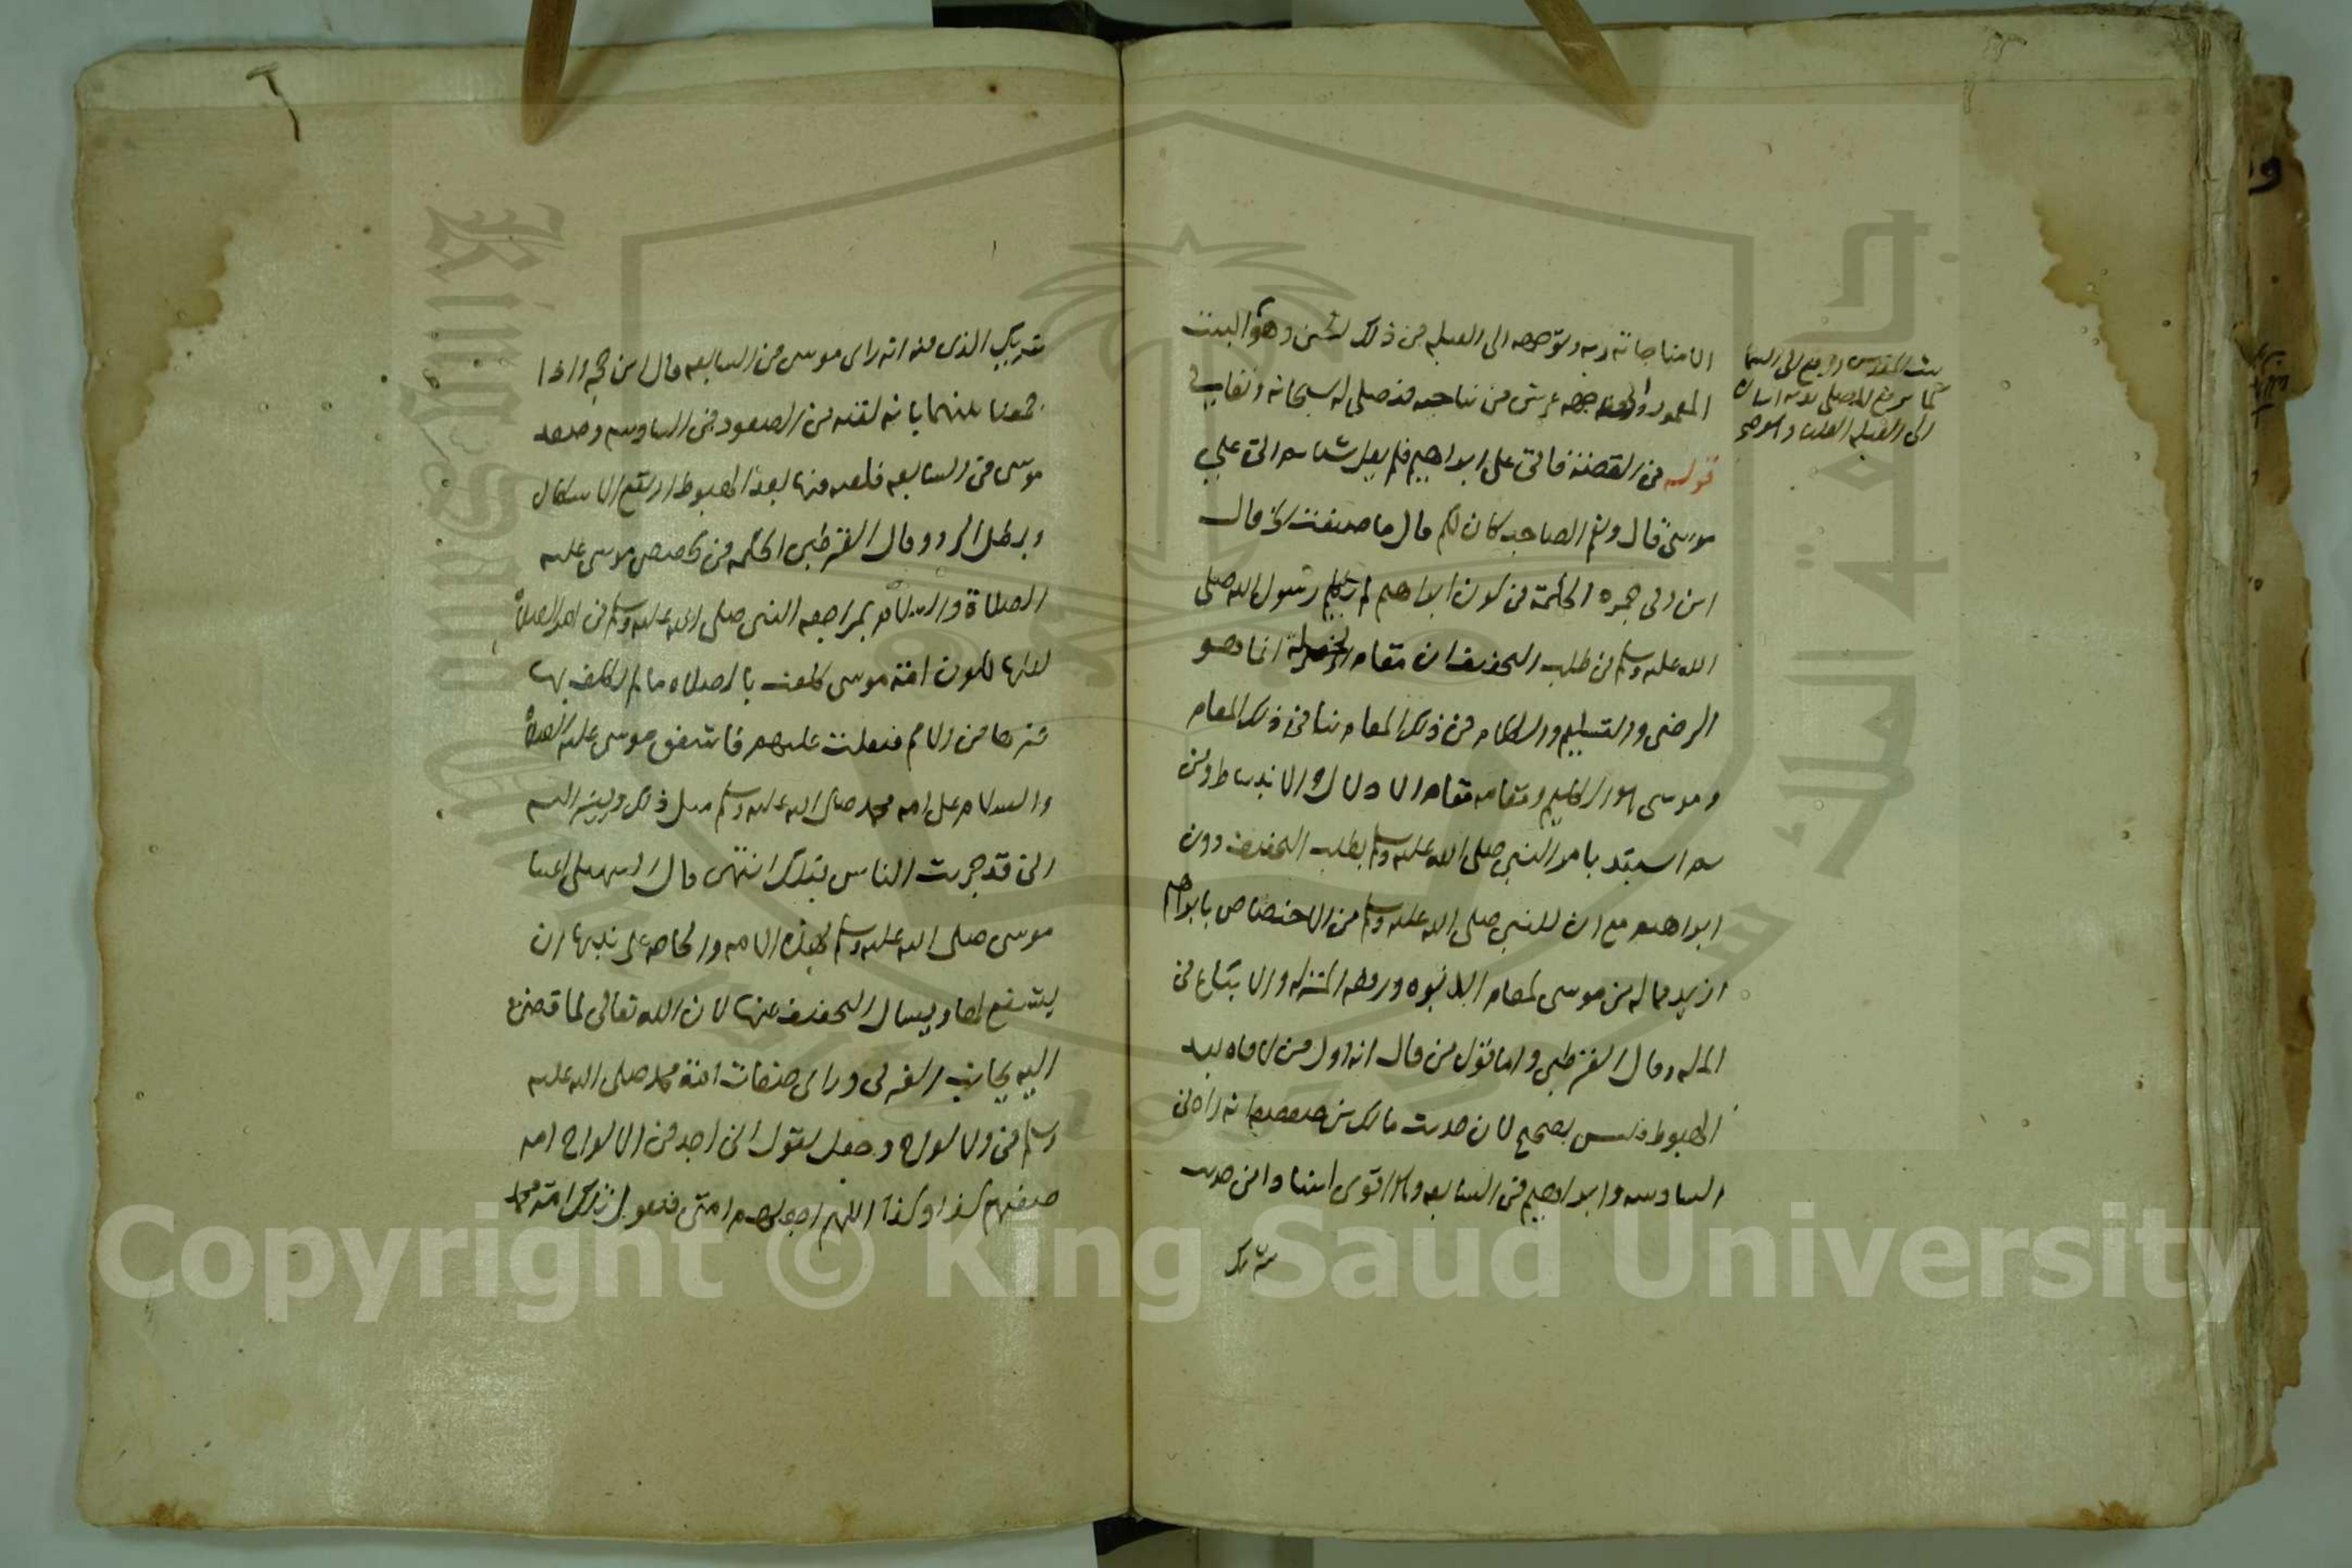 الا مناجاته ربه وتوجهه الى القبله من ذلك
المعمور والى جهة عرش من نناجيه فنصلي له سبحانه وتعالى
قوله في القصة فاتى على ابراهيم فلم يقل شيا ثم اتى علي
موسى قال ونعم الصاحب كان لكم قال ما صنعت الخ قال
ابن ابي جمره الحكمة في كون ابراهيم لم يكلم رسول الله صلى
الله عليه وسلم في طلب التخفيف ان مقام الخلة انما هو
الرضى والتسليم والكلام في ذلك المقام ينافي ذلك المقام
وموسى هو الكليم ومقامه مقام الادلال والانبساط ومن
ثم استبد بامر النبي صلى الله عليه وسلم بطلب التخفيف دون
ابراهيم مع ان للنبي صلى الله عليه وسلم من الاختصاص بابراهيم
ازيد مما له من موسى لمقام الابوه ورفعه المنزله والاتباع في
المله وقال القرطبي واما قول من قال انه اول من لاقاه بعد
الهبوط فليس بصحيح لان حديث مالك بن صعصعه انه راه في
السادسه وابراهيم في السابعه وهو اقوى اسنادا من حديث
شريك
بيت المقدس ورفع الى السما
الى القبله
شريك الذي فيه انه راى موسى في السابعه قال ابن حجر واذا
جمعنا بينهما بانه لقيه في الصعود في السادسه وصعد
موسى في السابعه فلقيه فيها بعد الهبوط ارتفع الاشكال
وبطل الرد وقال القرطبي الحكمه في تخصيص موسى عليه
الصلاة والسلام بمراجعه النبي صلى الله عليه وسلم في امر الصلاة
لعلها لكون امة موسى كلفت بالصلاه ما لم تكلف بها
غيرها من الامم فثقلت عليهم فاشفق موسى عليه الصلاة
والسلام على امه محمد صلى الله عليه وسلم مثل ذلك ويشير اليه
اني قد جربت الناس قبلك انتهى وقال السهيلي اعتنا
موسى صلى الله عليه وسلم بهذه الامه والحاحه على نبيها ان
يشفع لها ويسال التخفيف عنها لان الله تعالى لما قضى
اليه بجانب الغربي وراى صفات امة محمد صلى الله عليه
وسلم في الالواح وجعل يقول اني اجد في الالواح امه
صفتهم كذا وكذا اللهم اجعلهم امتي فيقول تلك امة محمد
Copyright © King Saud University